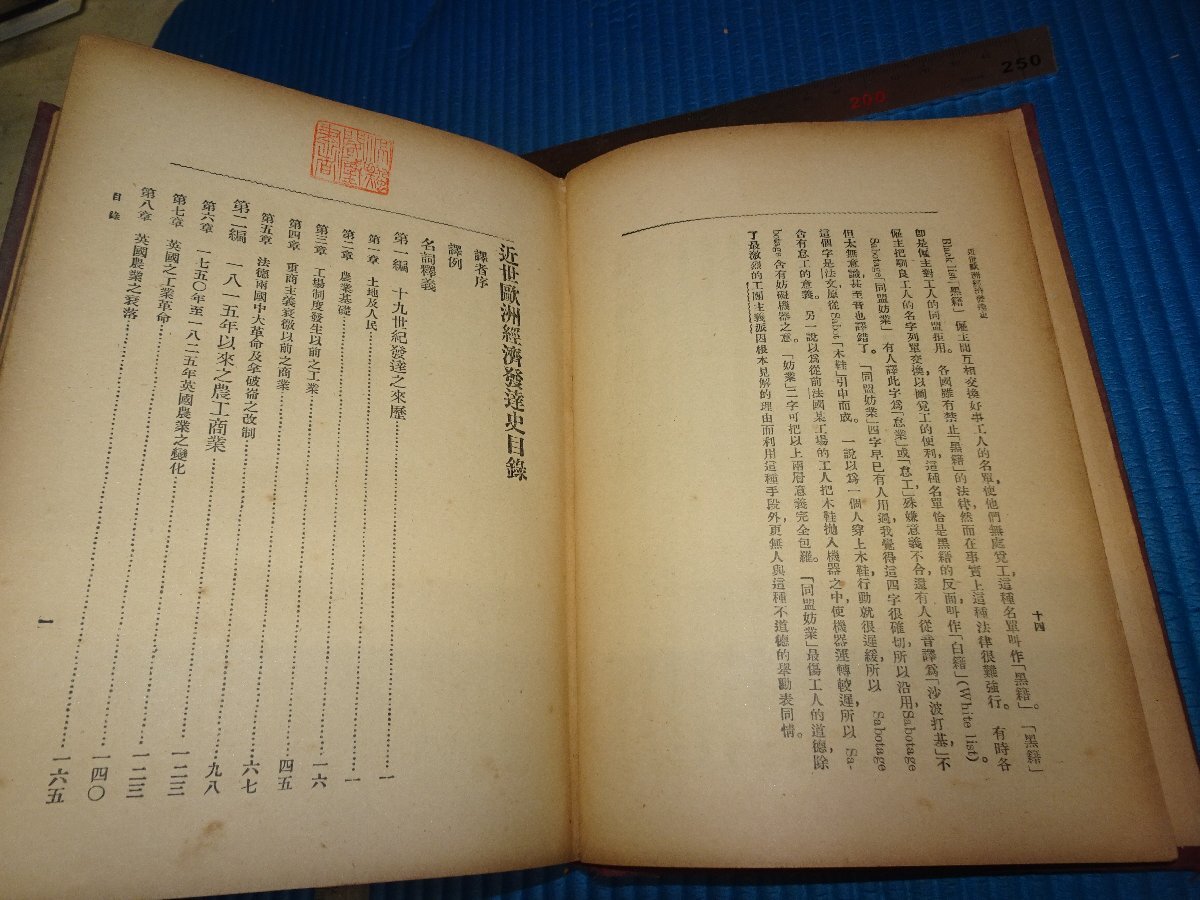 近世歐洲經濟發達史
十四
Black list「黑籍」　僱主間互相交換好事工人的名單，使他們無處覓工，這種名單叫作「黑籍」。「黑籍」
卽是僱主對工人的同盟拒用。各國雖有禁止「黑籍」的法律，然而在事實上這種法律很難強行。有時各
僱主把馴良工人的名字列單交換，以圖覓工的便利，這種名單恰是黑籍的反面，叫作「白籍」(White list)。
Sabotage「同盟妨業」　有人譯此字爲「怠業」或「怠工」，殊嫌意義不合，還有人從音譯爲「沙波打基」，不
但太無意識，甚至音也譯錯了。「同盟妨業」四字早已有人用過，我覺得這四字很確切，所以沿用。Sabotage
這個字是法文原從 Sabot「木鞋」引申而成。一說以爲一個人穿上木鞋，行動就很遲緩，所以 Sabotage
含有怠工的意義。另一說以爲從前法國某工場的工人把木鞋拋入機器之中，使機器運轉較遲，所以 Sa-
botage 含有妨礙機器之意。「妨業」二字可把以上兩層意義完全包羅。「同盟妨業」最傷工人的道德，除
了最激烈的工團主義派因根本見解的理由而利用這種手段外，更無人與這種不道德的舉動表同情。
近世歐洲經濟發達史目錄
譯者序
譯例
名詞釋義
第一編　十九世紀發達之來歷……一
第一章　土地及人民……一
第二章　農業基礎……一六
第三章　工場制度發生以前之工業……四五
第四章　重商主義衰微以前之商業……六七
第五章　法德兩國中大革命及拿破崙之改制……九八
第二編　一八一五年以來之農工商業……一二三
第六章　一七五〇年至一八二五年英國農業之變化……一二三
第七章　英國之工業革命……一四〇
第八章　英國農業之衰落……一六五
目錄
一